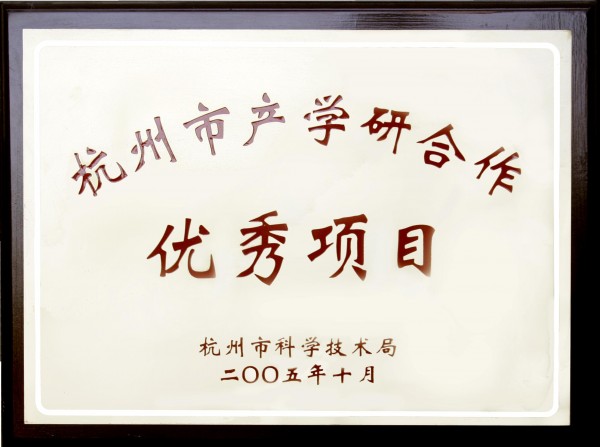 杭州市产学研合作
优秀项目
杭州市科学技术局
二〇〇五年十月